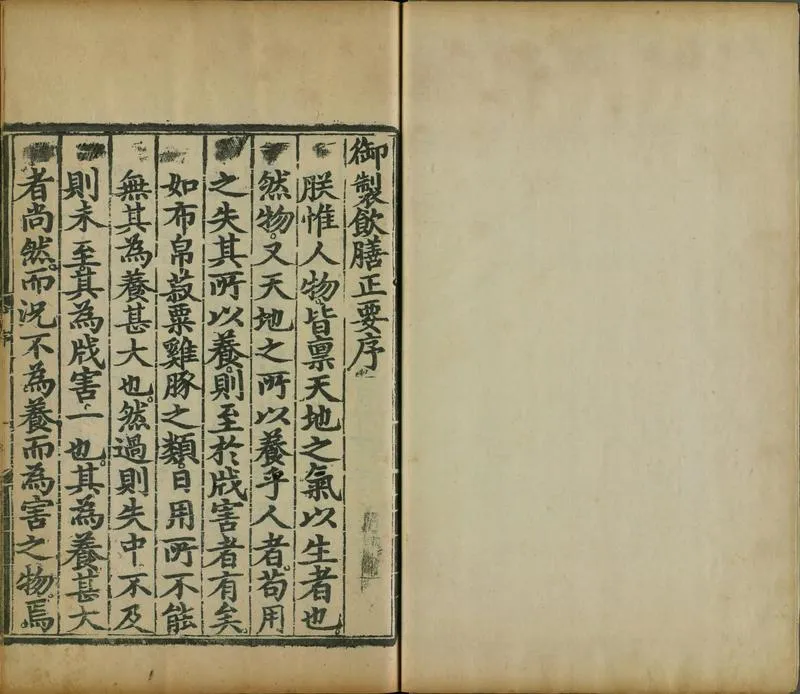 御製飲膳正要序
朕惟人物。皆禀天地之氣以生者也。
然物。又天地之所以養乎人者。苟用
之失其所以養。則至於戕害者有矣。
如布帛菽粟雞豚之類。日用所不能
無其為養甚大也。然過則失中不及
則未至。其為戕害一也。其為養甚大
者尚然。而況不為養而為害之物。焉